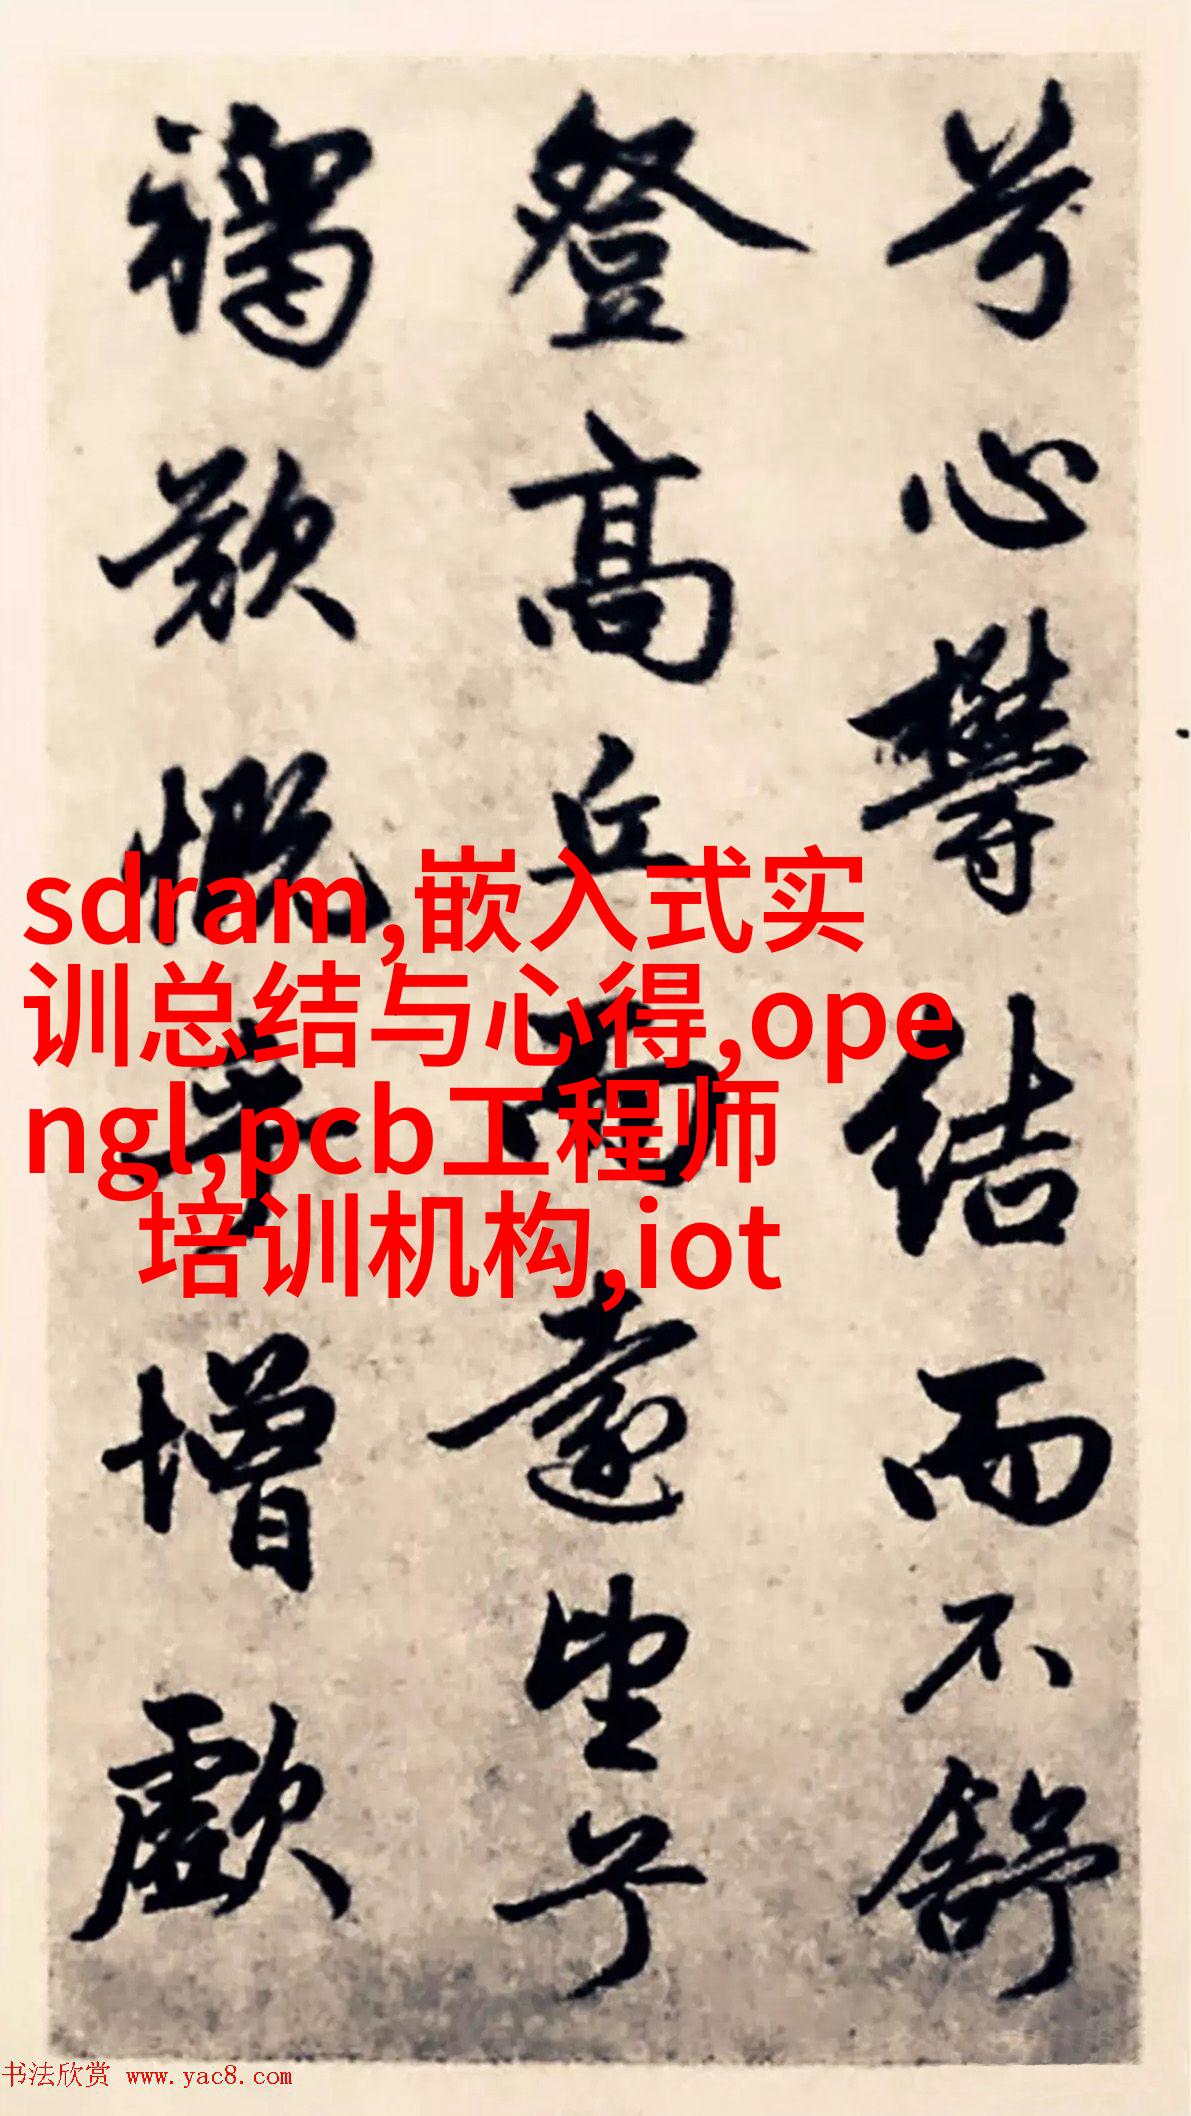 兮心欝結而不舒
登高丘而遠望兮
歎慨增歔
sdram,嵌入式实
训总结与心得,ope
ngl,pcb工程师
培训机构,iot
书法欣赏 www.yac8.com